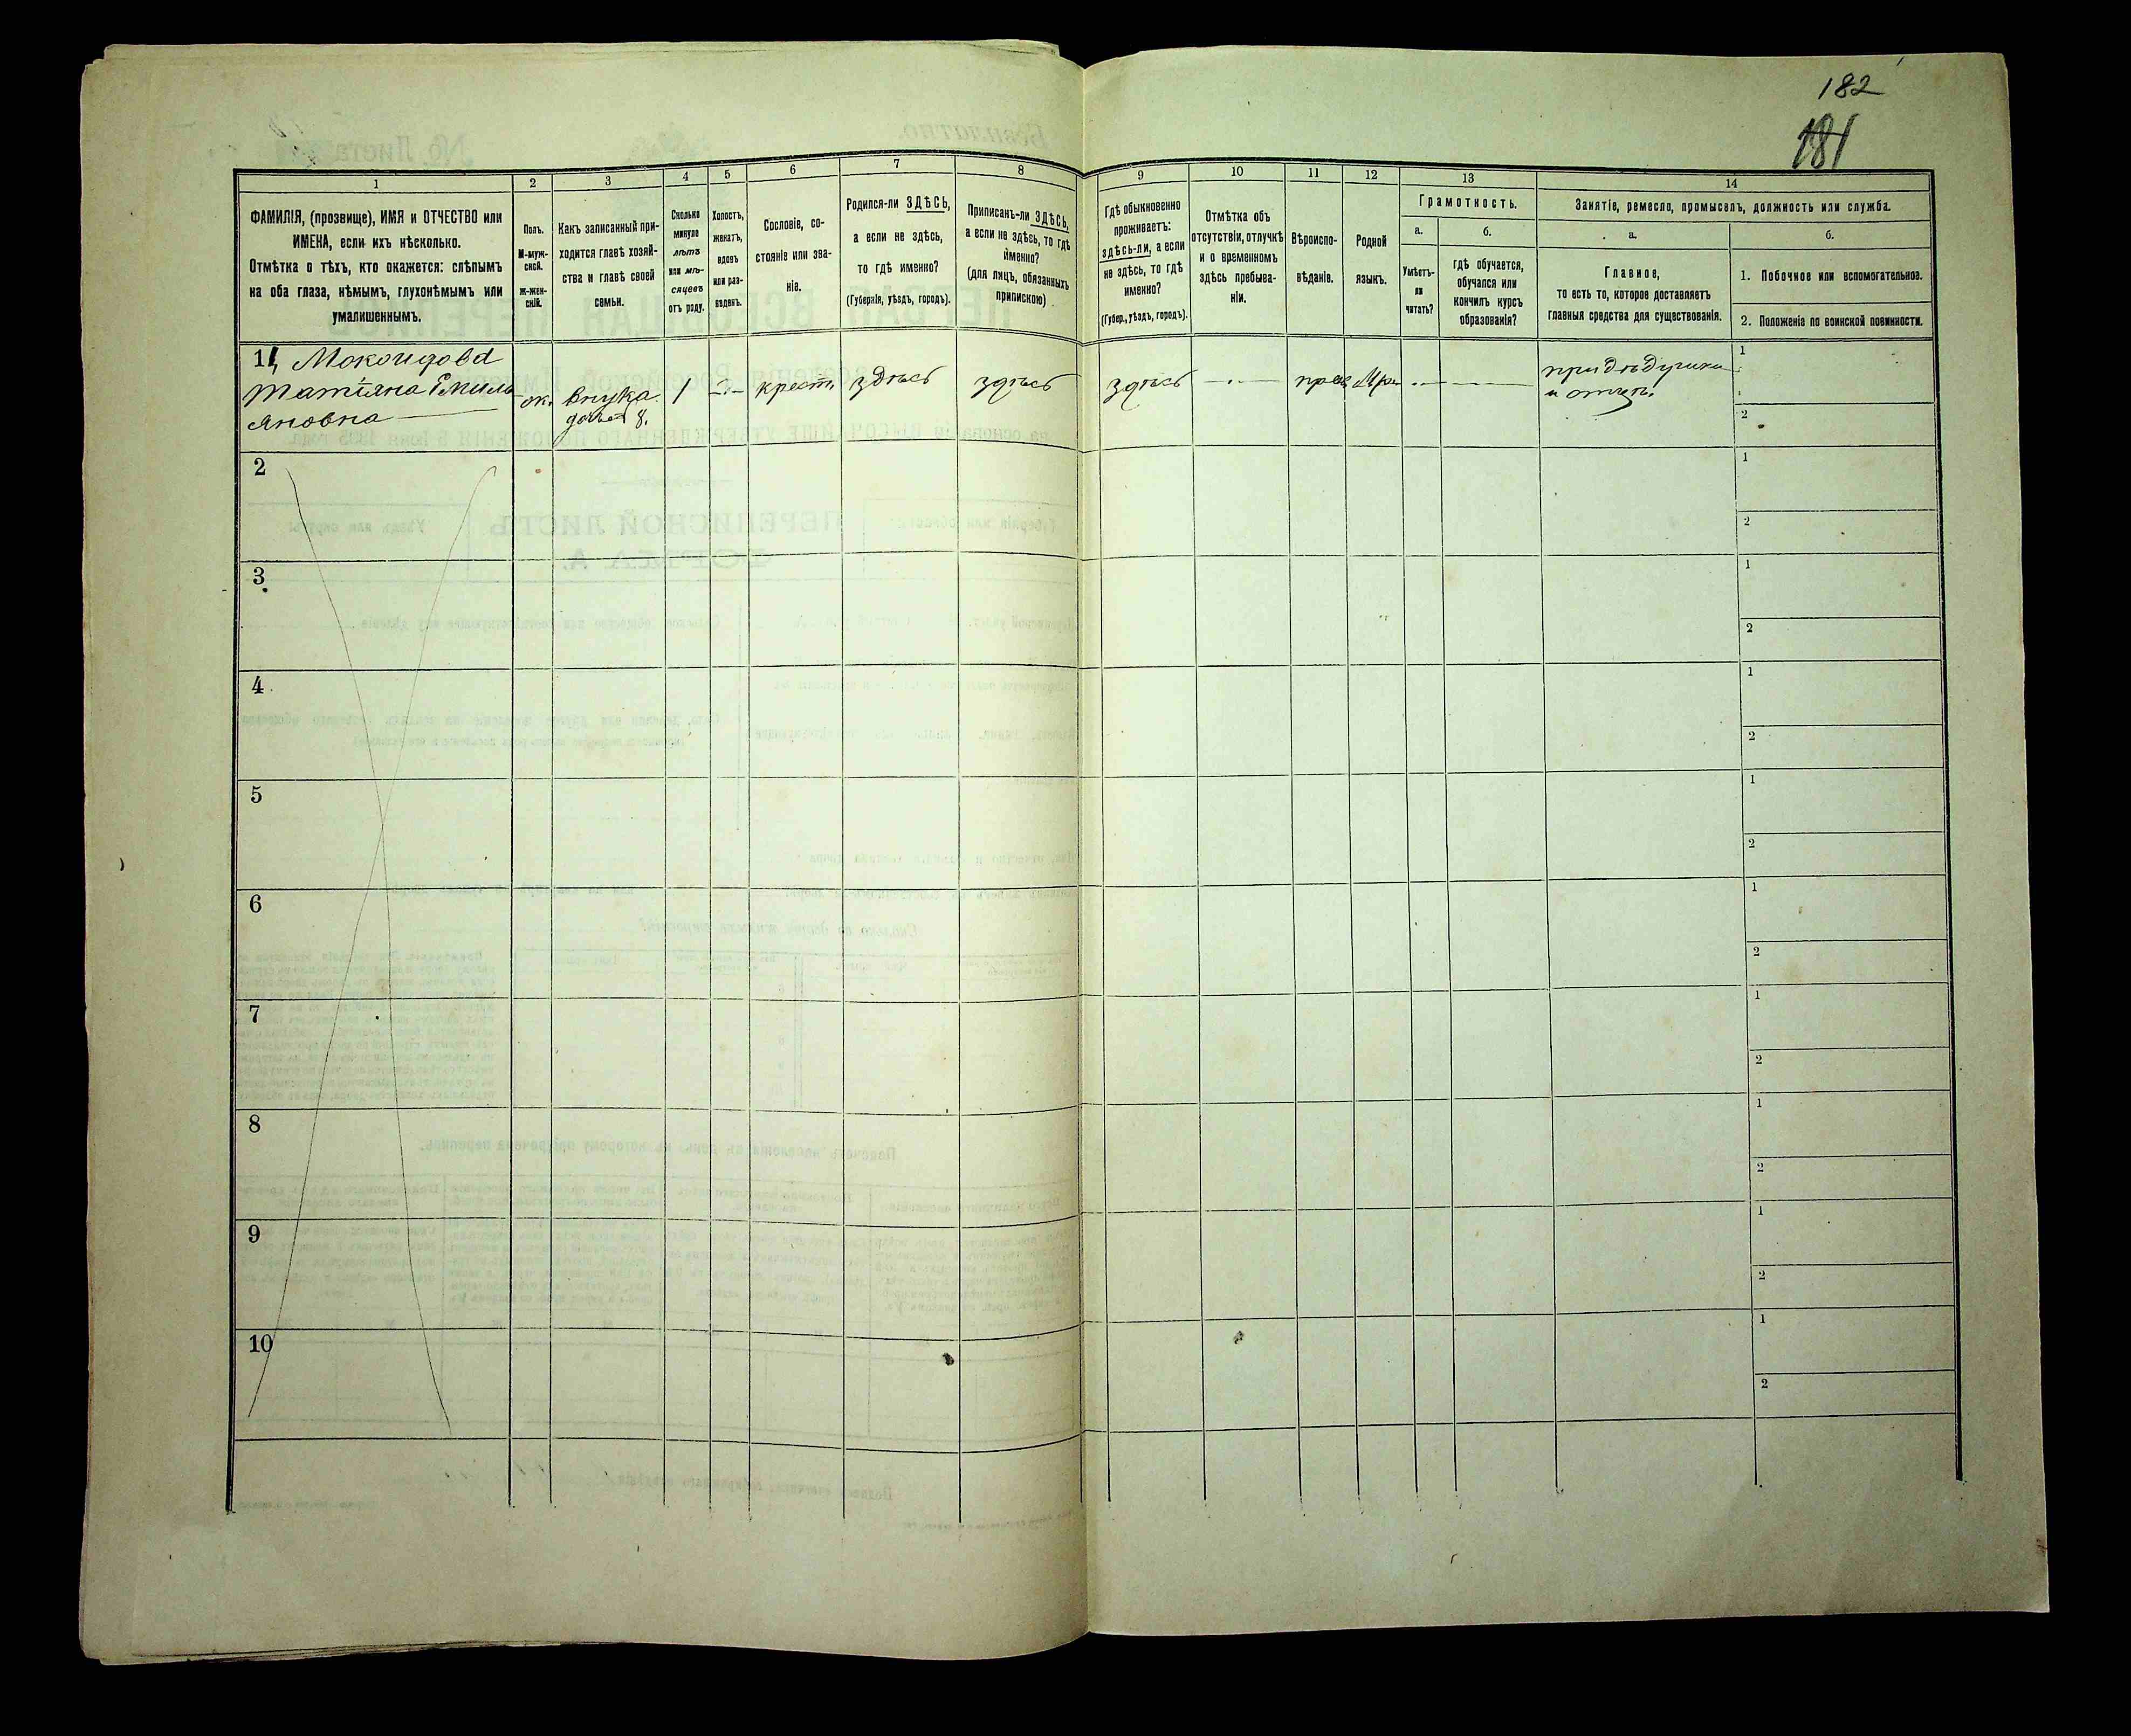 182
181
1
2
3
4
5
6
7
8
9
10
11
12
13
14
ФАМИЛІЯ, (прозвище), ИМЯ и ОТЧЕСТВО или
ИМЕНА, если ихъ нѣсколько.
Отмѣтка о тѣхъ, кто окажется: слѣпымъ
на оба глаза, нѣмымъ, глухонѣмымъ или
умалишеннымъ.
Полъ.
М-муж-
ской.
Ж-жен-
скій.
Какъ записанный при-
ходится главѣ хозяй-
ства и главѣ своей
семьи.
Сколько
минуло
лѣтъ
или мѣ-
сяцевъ
отъ роду.
Холостъ,
женатъ,
вдовъ
или раз-
веденъ.
Сословіе, со-
стояніе или зва-
ніе.
Родился-ли ЗДѢСЬ,
а если не здѣсь,
то гдѣ именно?
(Губернія, уѣздъ, городъ).
Приписанъ-ли ЗДѢСЬ,
а если не здѣсь, то гдѣ
именно?
(для лицъ, обязанныхъ
припискою)
Гдѣ обыкновенно
проживаетъ:
здѣсь-ли, а если
не здѣсь, то гдѣ
именно?
(Губер., уѣздъ, городъ).
Отмѣтка объ
отсутствіи, отлучкѣ
и о временномъ
здѣсь пребыва-
ніи.
Вѣроиспо-
вѣданіе.
Родной
языкъ.
Грамотность.
а.
Умѣетъ-
ли
читать?
б.
гдѣ обучается,
обучался или
кончилъ курсъ
образованія?
Занятіе, ремесло, промыселъ, должность или служба.
а.
Главное,
то есть то, которое доставляетъ
главныя средства для существованія.
б.
1. Побочное или вспомогательное.
2. Положеніе по воинской повинности.
11
Татіяна Емиль
яновна
ж.
внука
дочь 8.
1
крест.
здѣсь
здѣсь
здѣсь
прав
при дѣдушки
и отцѣ.
1
2
2
1
2
3
1
2
4
1
2
5
1
2
6
1
2
7
1
2
8
1
2
9
1
2
10
1
2